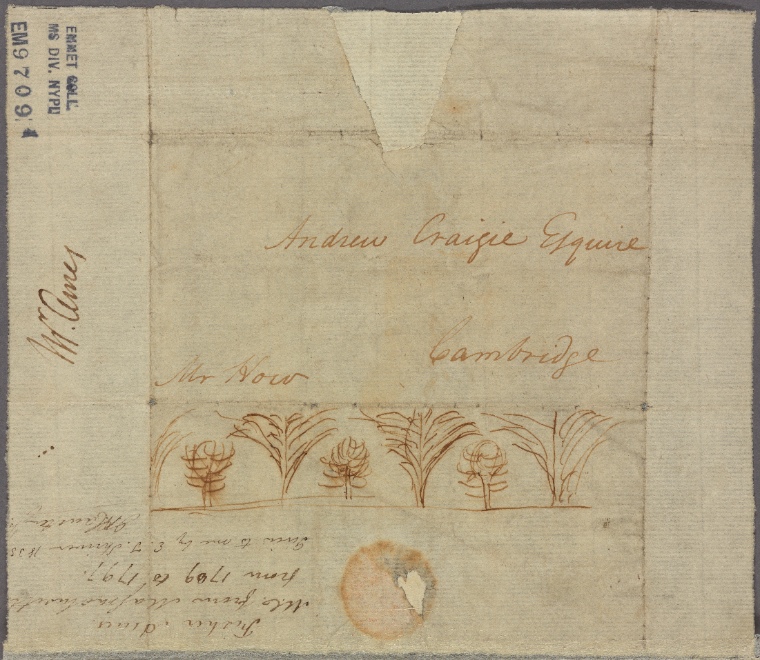 EMMET COLL.
MS DIV. NYPL
EM9709
Andrew Craigie Esquire
Cambridge
Mr How
Mr. Ames
Fisher Ames
M.C. from Massachusetts
from 1789 to 1797.
Given to me by E. J. 1835